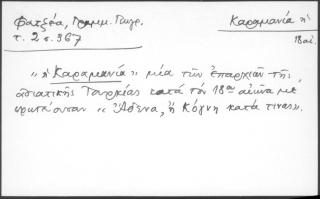 Φατζέα, Γραμμ. Γεωγρ.
τ. 2 σ. 367
Καραμανία ἡ
18 αἰ.
"ἡ Καραμανία" μία τῶν ἐπαρχιῶν τῆς
ἀσιατικῆς Τουρκίας κατά τόν 18ον αἰῶνα μέ
πρωτεύουσαν "Ἀθενα, ἤ Κόγνη κατά τινας".